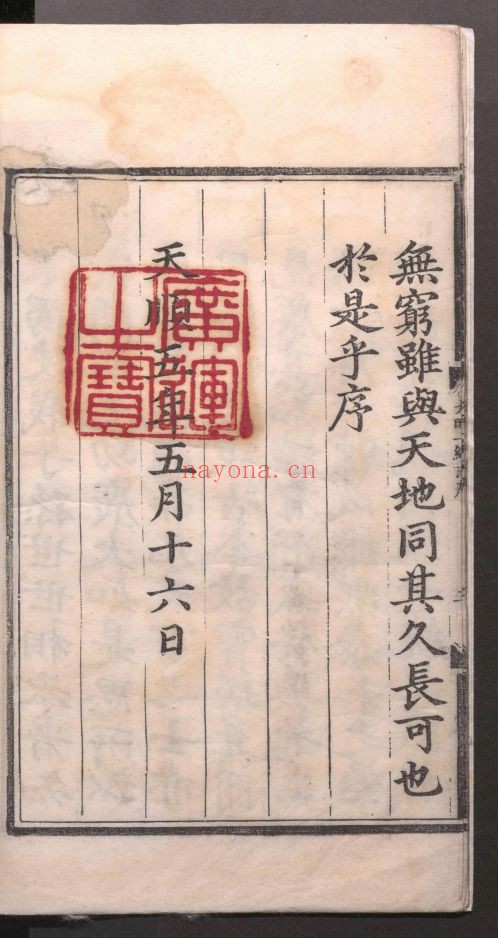 無窮雖與天地同其久長可也
於是乎序
天順五年五月十六日
廣運
之寶
nayona.cn